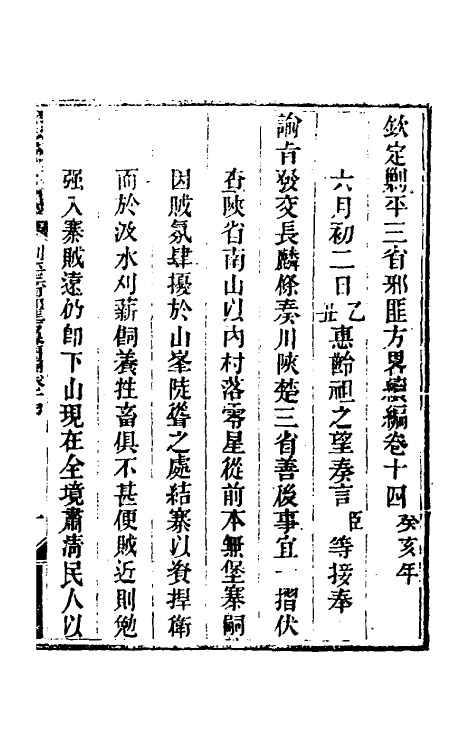 欽定剿平三省邪匪方畧續編卷十四癸亥年
六月初二日乙丑惠齡祖之望奏言臣等接奉
諭旨發交長麟條奏川陝楚三省善後事宜一摺伏
查陝省南山以內村落零星從前本無堡寨嗣
因賊氛肆擾於山峯陡聳之處結寨以資捍衛
而於汲水刈薪飼養牲畜俱不甚便賊近則勉
强入寨賊遠仍卽下山現在全境肅清民人以